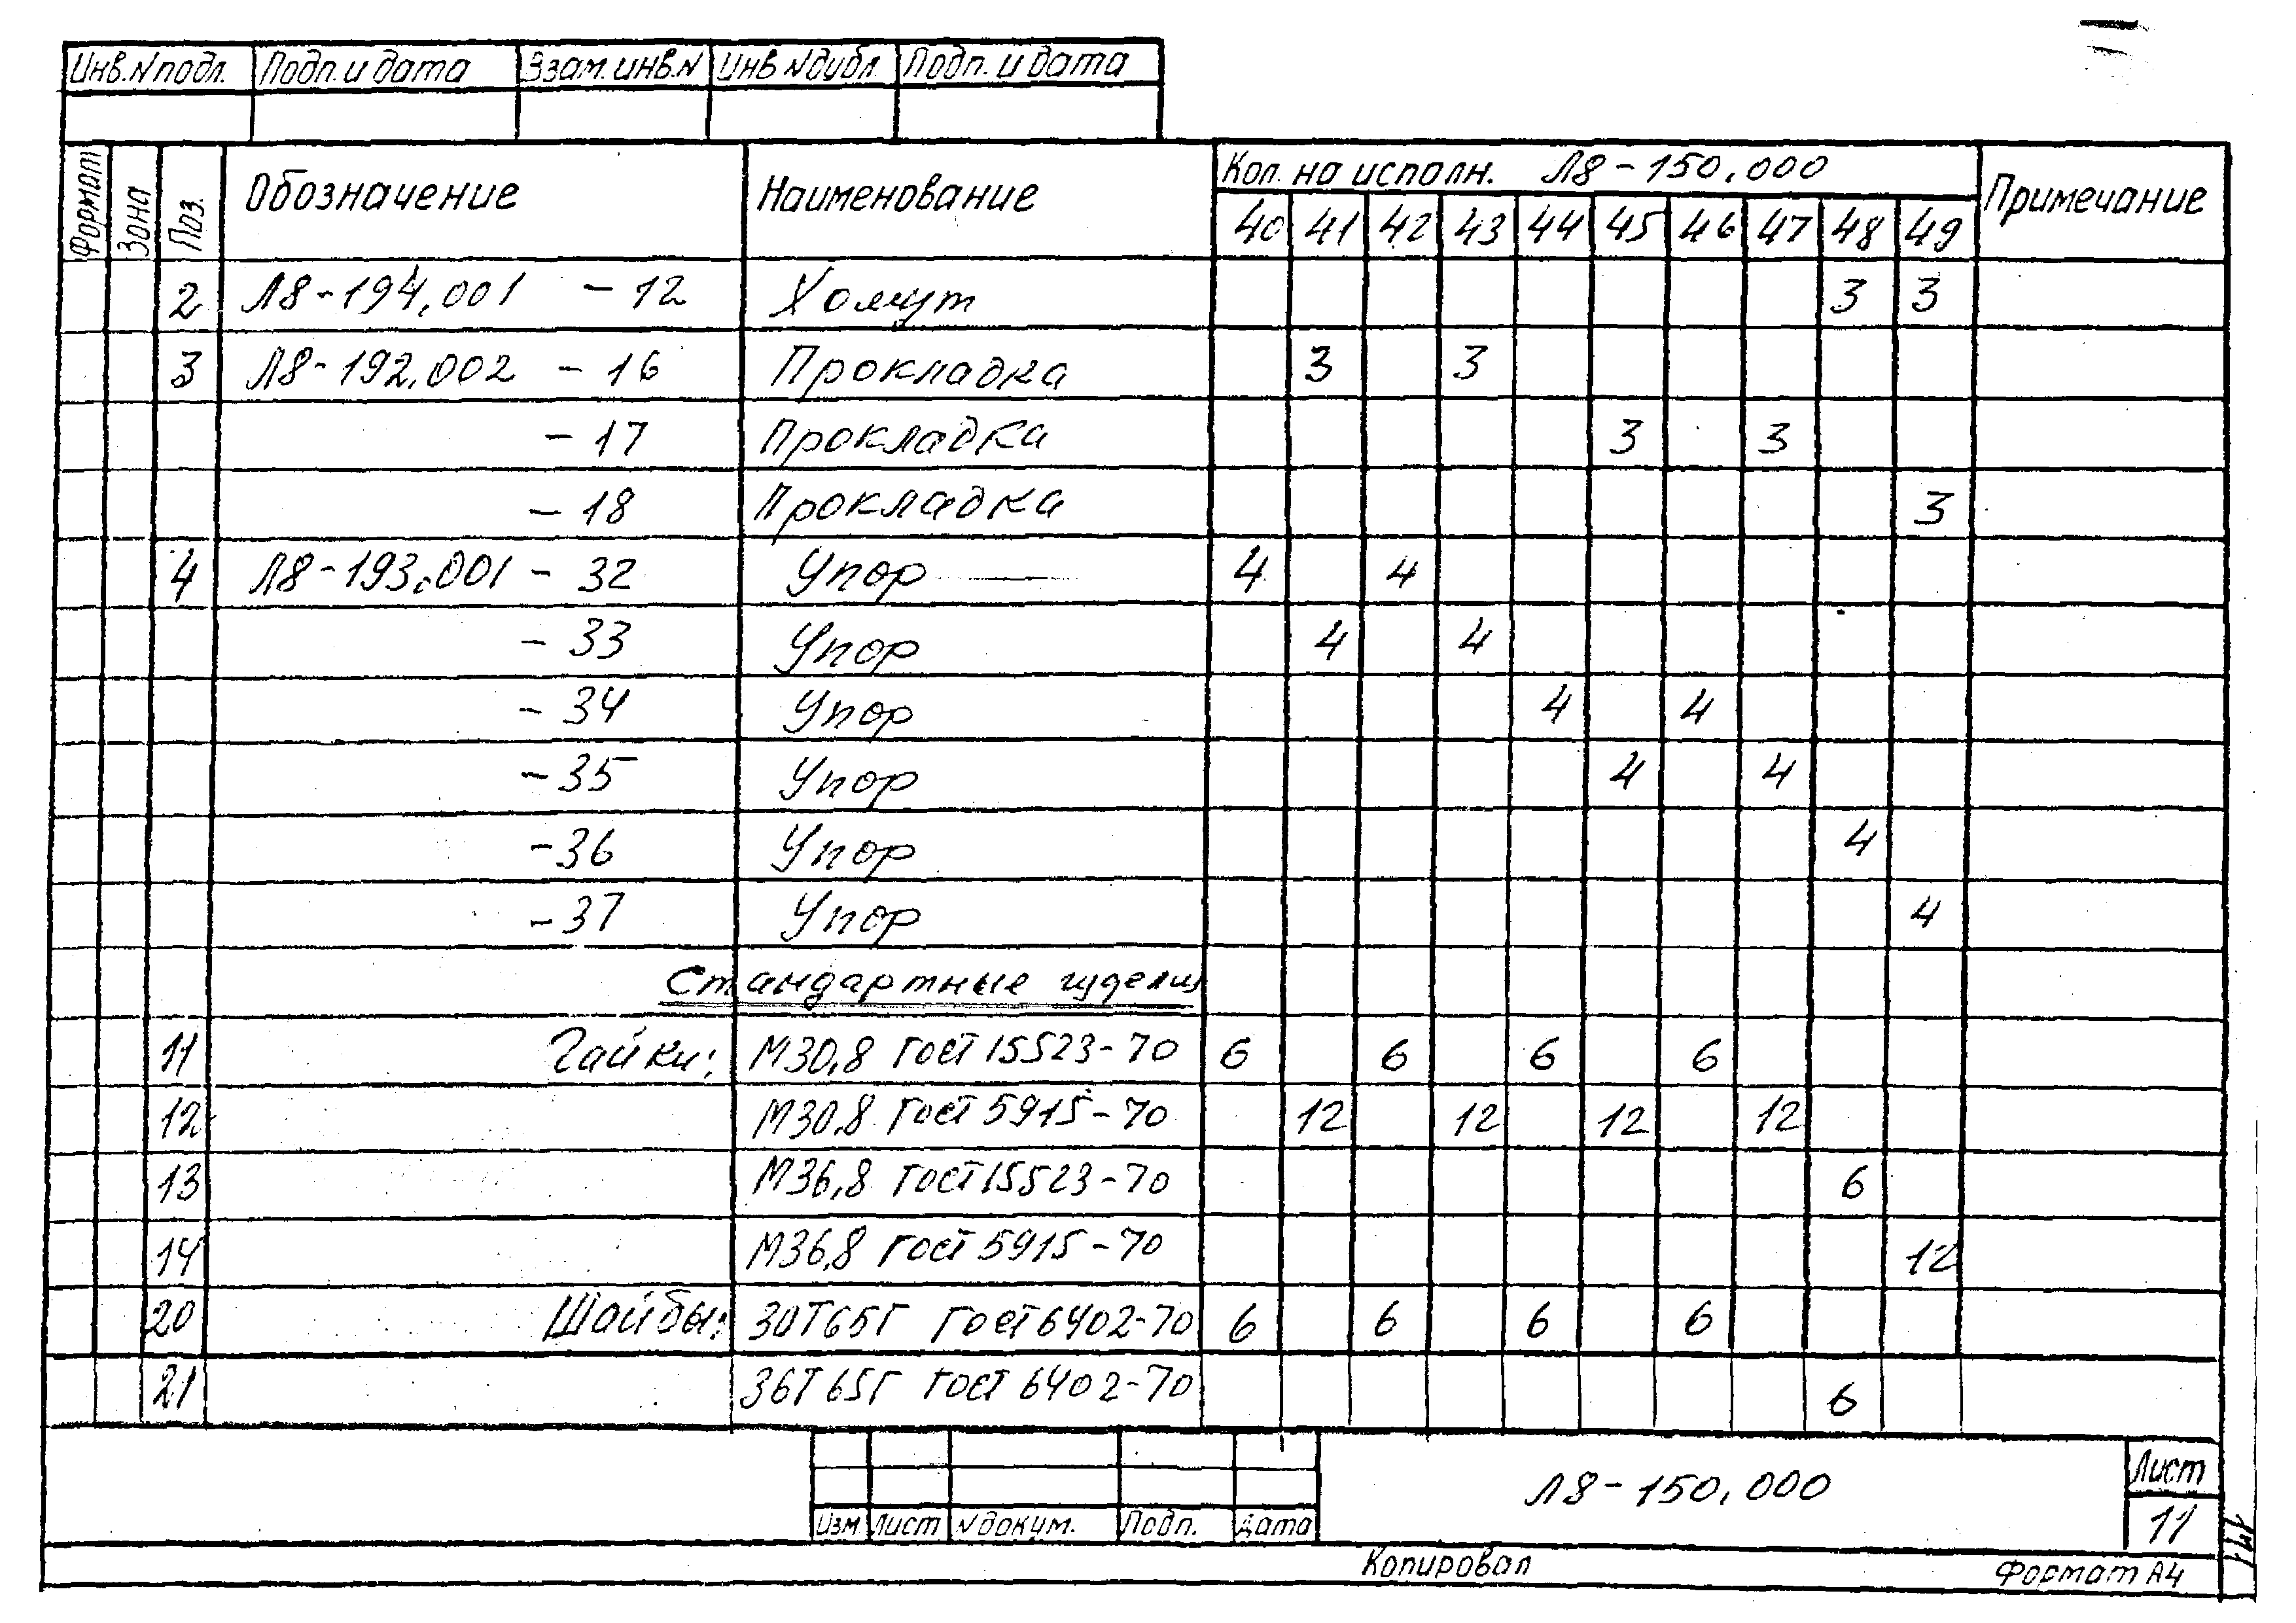 Инв.N подл. Подп. и дата Взам. инв. N Инв N дубл. Подп. и дата
Формат Зона Поз. Обозначение Наименование Кол. на исполн. Л8-150,000 Примечание
40 41 42 43 44 45 46 47 48 49
2 Л8-194,001 -12 Хомут 3 3
3 Л8-192,002 -16 Прокладка 3 3
-17 Прокладка 3 3
-18 Прокладка 3
4 Л8-193,001 -32 Упор 4 4
-33 Упор 4 4
-34 Упор 4 4
-35 Упор 4 4
-36 Упор 4
-37 Упор 4
Стандартные изделия
11 Гайки: М30,8 ГОСТ 15523-70 6 6 6 6
12 М30,8 ГОСТ 5915-70 12 12 12 12
13 М36,8 ГОСТ 15523-70 6
14 М36,8 ГОСТ 5915-70 12
20 Шайбы: 30Т65Г ГОСТ 6402-70 6 6 6 6
21 36Т65Г ГОСТ 6402-70 6
Л8-150,000 Лист
Изм Лист N докум. Подп. Дата 11
Копировал Формат А4